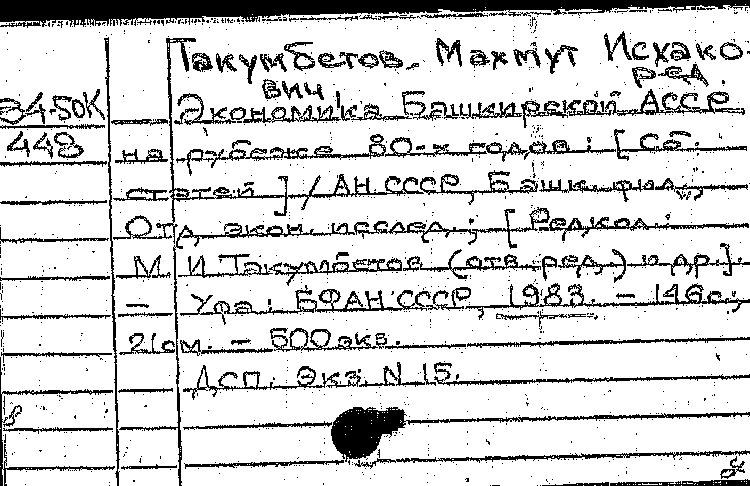 Такумбетов Махмут Исхако-
вич, ред.
84-50К
448
Экономика Башкирской АССР
на рубеже 80-х годов : [ Сб.
статей ] / АН СССР, Башк. фил.,
Отд. экон. исслед. ; [ Редкол. :
М. И Такумбетов (отв. ред.) и др.].
— Уфа : БФАН СССР, 1983. — 146с.;
21см. — 500 экз.
ДСП. Экз. N 15.